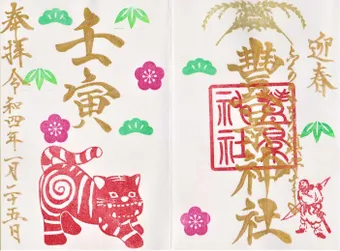 迎春
豊景神社
豊景神社
壬寅
奉拝 令和四年一月二十五日